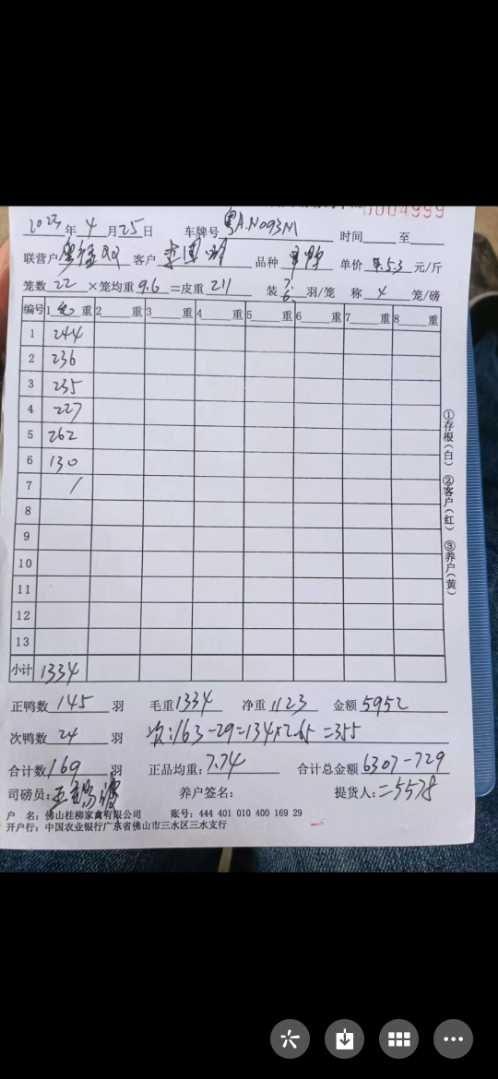 0004999
2023年4月25日 车牌号 粤A.N093M 时间 至
联营户 客户 李国 品种 单价 5.53 元/斤
笼数 22 ×笼均重 9.6 =皮重 211 装 7.6 羽/笼 称 4 笼/磅
编号 1 重 2 重 3 重 4 重 5 重 6 重 7 重 8 重
1 244
2 236
3 235
4 227
5 262
6 130
7 /
8
9
10
11
12
13
小计 1334
正鸭数 145 羽 毛重 1334 净重 1123 金额 5952
次鸭数 24 羽 次:163-29=134×2.65=355
合计数 169 羽 正品均重: 7.74 合计总金额 6307-729
司磅员: 养户签名: 提货人: =5578
户 名: 佛山桂柳家禽有限公司 账号: 444 401 010 400 169 29
开户行: 中国农业银行广东省佛山市三水区三水支行
①存根(白) ②客户(红) ③养户(黄)